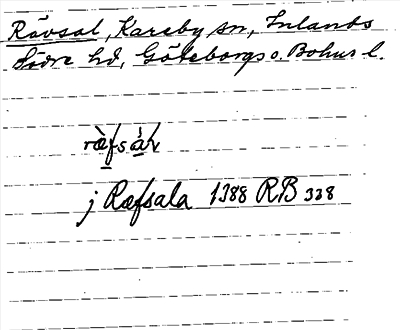 Rävsal, Kareby sn, Inlands
Södre hd, Göteborgs o. Bohus l.
j Ræfsala 1388 RB 328